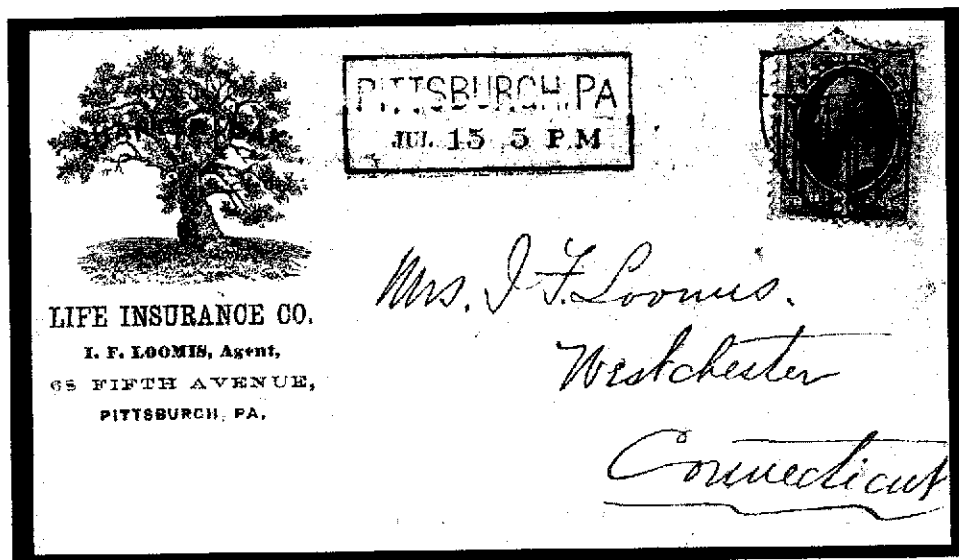 PITTSBURGH, PA
JUL 15 5 P M
3
LIFE INSURANCE CO.
I. F. LOOMIS, Agent,
68 FIFTH AVENUE,
PITTSBURGH, PA.
Mrs. I. F. Loomis.
Westchester
Connecticut